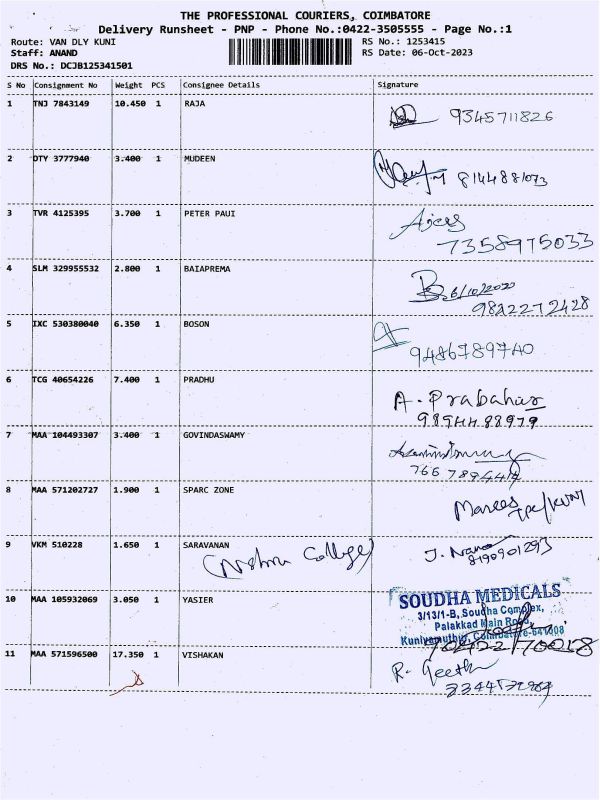 THE PROFESSIONAL COURIERS, COIMBATORE
Delivery Runsheet - PNP - Phone No.:0422-3505555 - Page No.:1
Route: VAN DLY KUNI RS No.: 1253415
Staff: ANAND RS Date: 06-Oct-2023
DRS No.: DCJB125341501
S No Consignment No Weight PCS Consignee Details Signature
1 TNJ 7843149 10.450 1 RAJA 9345711826
2 DTY 3777940 3.400 1 MUDEEN 8144881073
3 TVR 4125395 3.700 1 PETER PAUI
7358975033
4 SLM 329955532 2.800 1 BAIAPREMA
9822272428
5 IXC 530380040 6.350 1 BOSON
9486789740
6 TCG 40654226 7.400 1 PRADHU A. Prabahar
9894488979
7 MAA 104493307 3.400 1 GOVINDASWAMY
7667894414
8 MAA 571202727 1.900 1 SPARC ZONE
9 VKM 510228 1.650 1 SARAVANAN
College
8190901293
10 MAA 105932069 3.050 1 YASIER SOUDHA MEDICALS
3/13/1-B, Soudha Complex,
Palakkad Main Road,
Kuniyamuthur, Coimbatore-641008
11 MAA 571596500 17.350 1 VISHAKAN R. Geetha